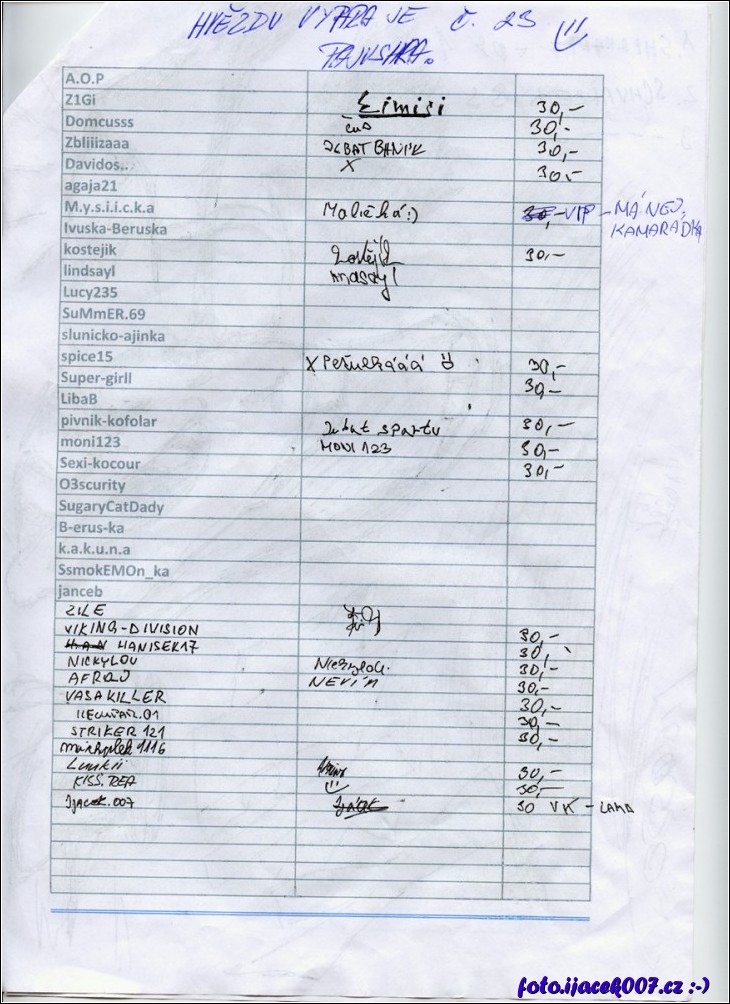 HVĚZDU VYPRA JE Č. 23
A.O.P
Z1Gi Eimisi 30,-
Domcusss čus 30,-
Zbliiizaaa JEBAT BANIK 30,-
Davidos.. X 30,-
agaja21
M.y.s.i.i.c.k.a Maličká:) 30,- VIP - MÁ NEJ. KAMARÁDKA
Ivuska-Beruska
kostejik 30,-
lindsayl
Lucy235
SuMmER.69
slunicko-ajinka
spice15 X 30,-
Super-girll 30,-
LibaB
pivnik-kofolar Jebat spartu 30,-
moni123 MONI 123 30,-
Sexi-kocour 30,-
O3scurity
SugaryCatDady
B-erus-ka
k.a.k.u.n.a
SsmokEMOn_ka
janceb
ZILE
VIKING-DIVISION 30,-
HANISEK17 30,-
NICKYLOU 30,-
AFROU NEVIM 30,-
VASAKILLER 30,-
30,-
STRIKER 121 30,-
1116
Lunkii 30,-
KISS.REA 30,-
Ijacek.007 30 VK - LAMA
foto.ijacek007.cz :-)